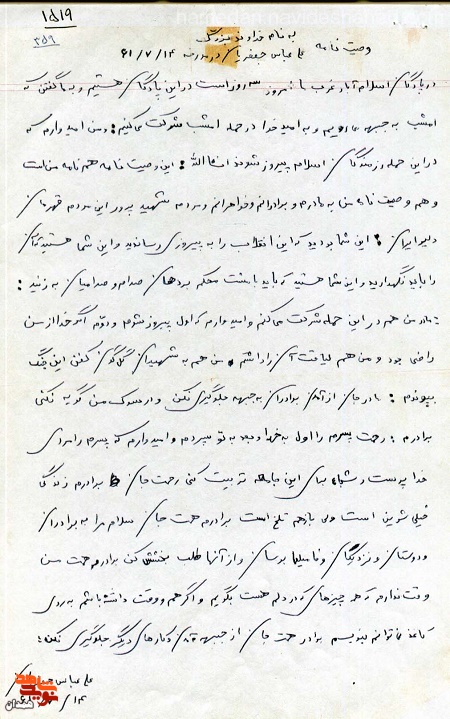 ۱۵۱۹
۳۵۹
به نام خداوند بزرگ
وصیت نامه علی عباس جعفریان در مورخه ۶۱/۷/۱۴
در پادگان اسلام آباد غرب با امروز سه روز است در این پادگان هستیم و به ما گفتن که
امشب به جبهه می رویم و به امید خدا در حمله امشب شرکت می کنیم و من امیدوارم که
در این حمله رزمندگان اسلام پیروز شوند انشاالله این وصیت نامه هم نامه من است
و هم وصیت نامه من به مادرم و برادرانم و خواهرانم و مردم شهید پرور این مردم قهرمان
دلیر ایران این شما بودید که این انقلاب را به پیروزی رساندید و این شما هستید که آن
را باید نگهدارید و این شما هستید که باید با مشت محکم بر دهان صدام و صدامیان به زنید
مادر من هم در این حمله شرکت می کنم و امیدوارم که اول پیروز شوم و دوم اگر خدا از من
راضی بود و من هم لیاقت آن را داشتم من هم به شهیدان گلگون کفن این جنگ
بپیوندم مادر جان از آمدن برادران به جبهه جلوگیری نکن و در من گریه نکنی
برادرم رحمت پسرم را اول به خدا و بعد به تو سپردم و امیدوارم که پسرم را مردی
خدا پرست و برای این جامعه تربیت کنی رحمت جان برادرم زندگی
خیلی شیرین است ولی بازهم تلخ است برادرم رحمت جان سلام مرا به برادران
و دوستان و نزدیکان و فامیلها برسان و از آنها طلب بخشش کن برادرم رحمت من
وقت ندارم که همه چیزهای که در دلم هست بگویم و اگر هم وقت داشته باشم به روی
کاغذ نمی توانم بنویسم برادر رحمت جان از جبهه آمدن و کارهای دیگر جلوگیری نکن
علی عباس جعفریان